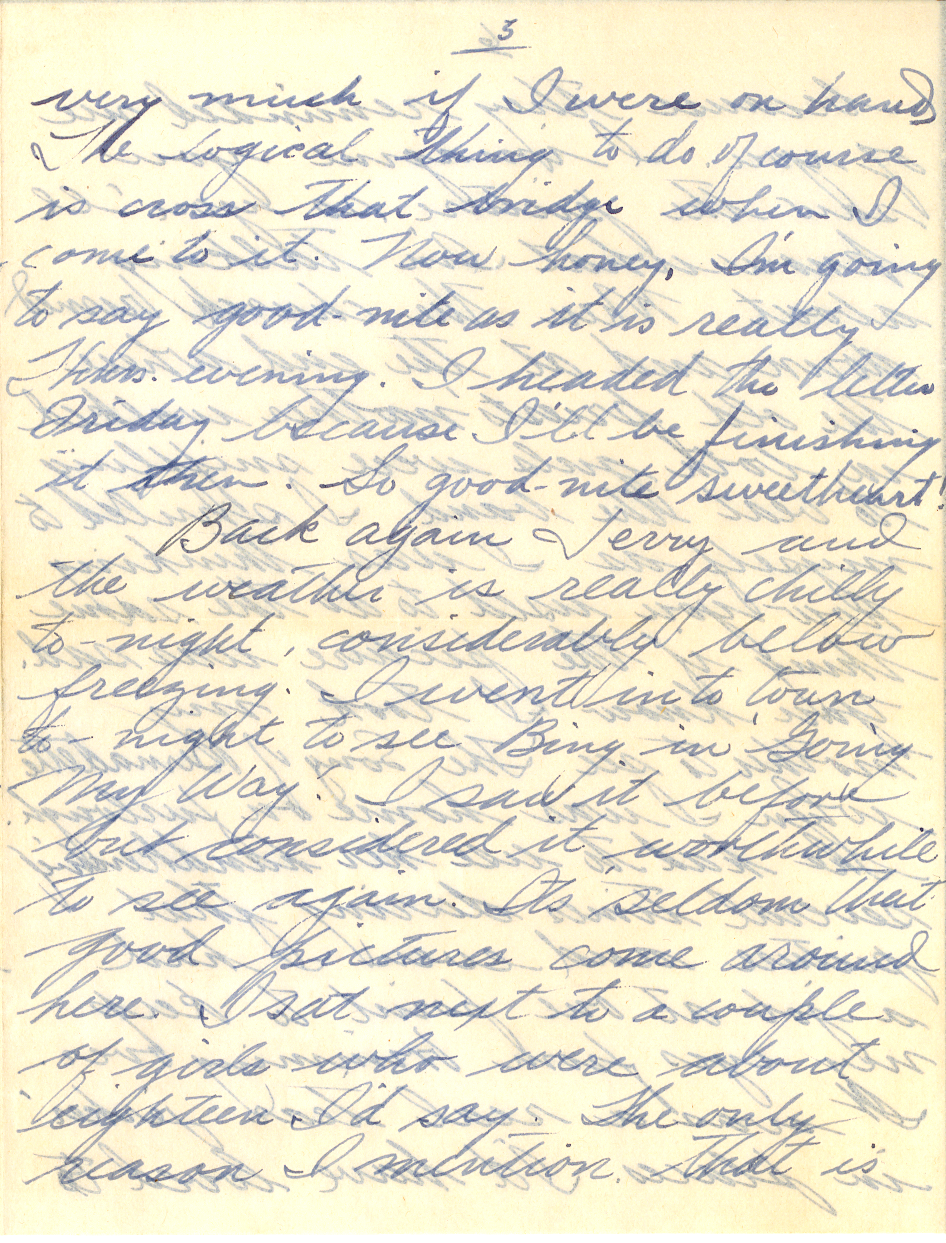 3
very much if I were on hand
The logical thing to do of course
is cross that bridge when I
come to it. Now honey, I'm going
to say good-nite as it is really
Thurs. evening. I headed the letter
Friday because I'll be finishing
it then. So good-nite sweetheart!
Back again Jerry and
the weather is really chilly
to-night, considerably bellow
freezing. I went in to town
to-night to see Bing in "Going
My Way". I saw it before
but considered it worthwhile
to see again. Its seldom that
good pictures come around
here. I sat next to a couple
of girls who were about
eighteen I'd say. The only
reason I mention that is